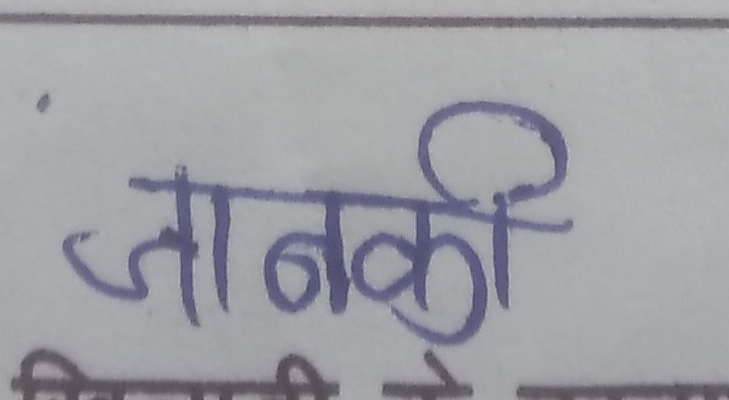 जानकी